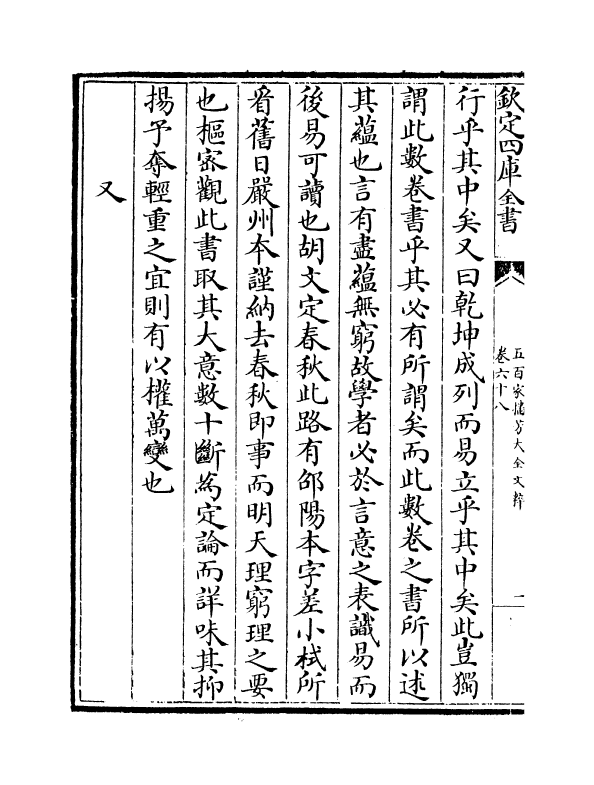 欽定四庫全書
五百家播芳大全文粹
卷六十八
一
行乎其中矣又曰乾坤成列而易立乎其中矣此豈獨
謂此數卷書乎其必有所謂矣而此數卷之書所以述
其蘊也言有盡蘊無窮故學者必於言意之表識易而
後易可讀也胡文定春秋此路有邵陽本字差小栻所
看舊日嚴州本謹納去春秋即事而明天理窮理之要
也樞密觀此書取其大意數十斷為定論而詳味其抑
揚予奪輕重之宜則有以權萬變也
又